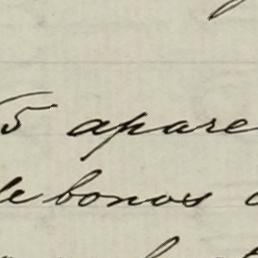 5 apare
de bonos